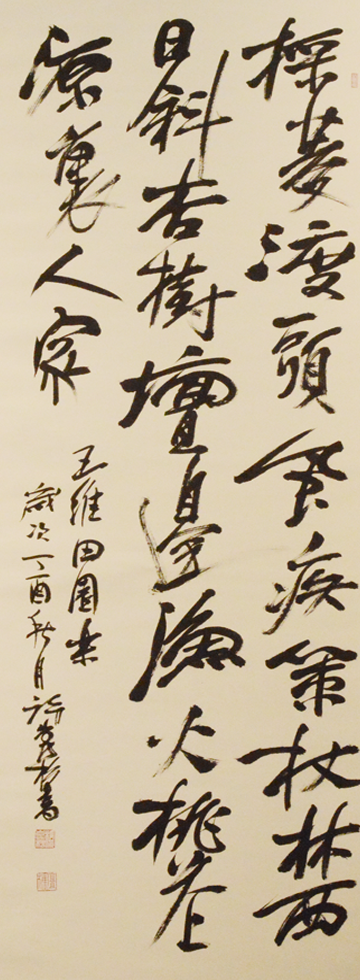 採菱渡頭風疾策杖林西
日斜杏樹壇邊漁火桃花
源裏人家
王維田園樂
歲次丁酉秋月